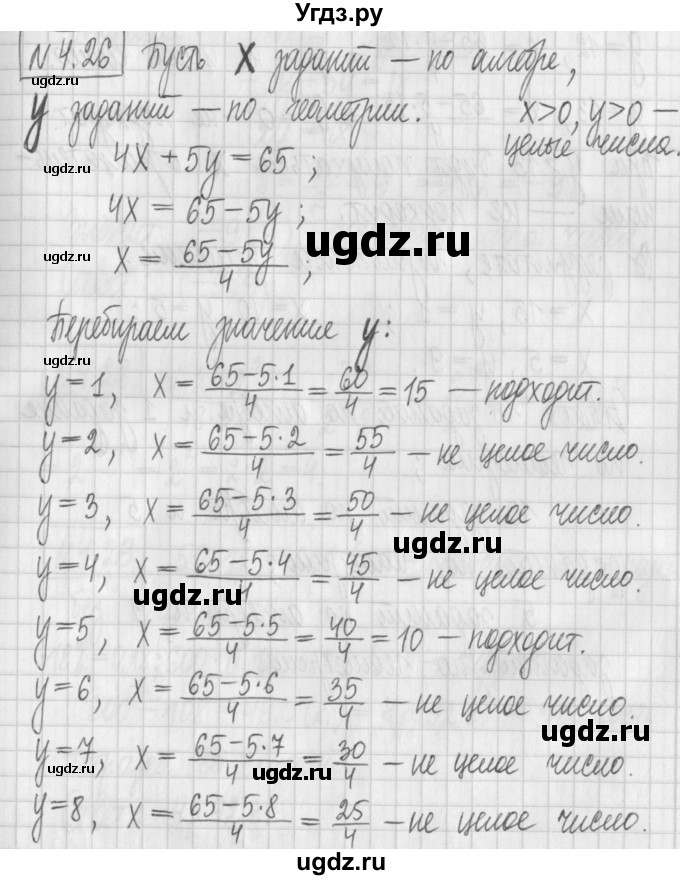 Угдз.ру
№ 4.26 Пусть x заданий — по алгебре,
y заданий — по геометрии. x>0, y>0 —
целые числа.
ugdz.ru
4x + 5y = 65 ;
4x = 65 − 5y ;
ugdz.ru
x = (65−5y)/4 ;
ugdz.ru
Перебираем значение y:
ugdz.ru
y=1, x = (65−5·1)/4 = 60/4 = 15 — подходит.
y=2, x = (65−5·2)/4 = 55/4 — не целое число.
y=3, x = (65−5·3)/4 = 50/4 — не целое число.
ugdz.ru
y=4, x = (65−5·4)/4 = 45/4 — не целое число.
ugdz.ru
y=5, x = (65−5·5)/4 = 40/4 = 10 — подходит.
y=6, x = (65−5·6)/4 = 35/4 — не целое число.
ugdz.ru
y=7, x = (65−5·7)/4 = 30/4 — не целое число.
ugdz.ru
ugdz.ru
y=8, x = (65−5·8)/4 = 25/4 — не целое число.
ugdz.ru